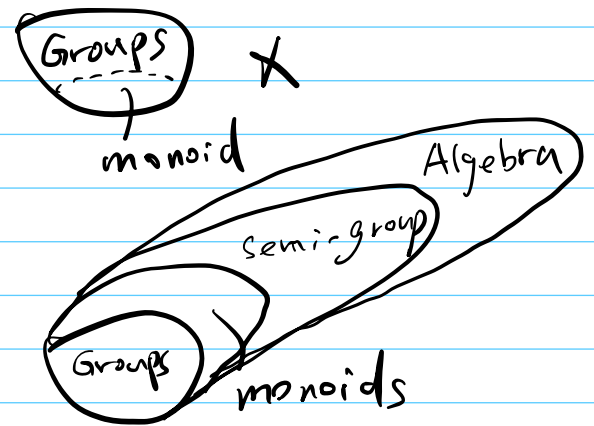 Groups
X
monoid
Algebra
semi-group
Groups
monoids